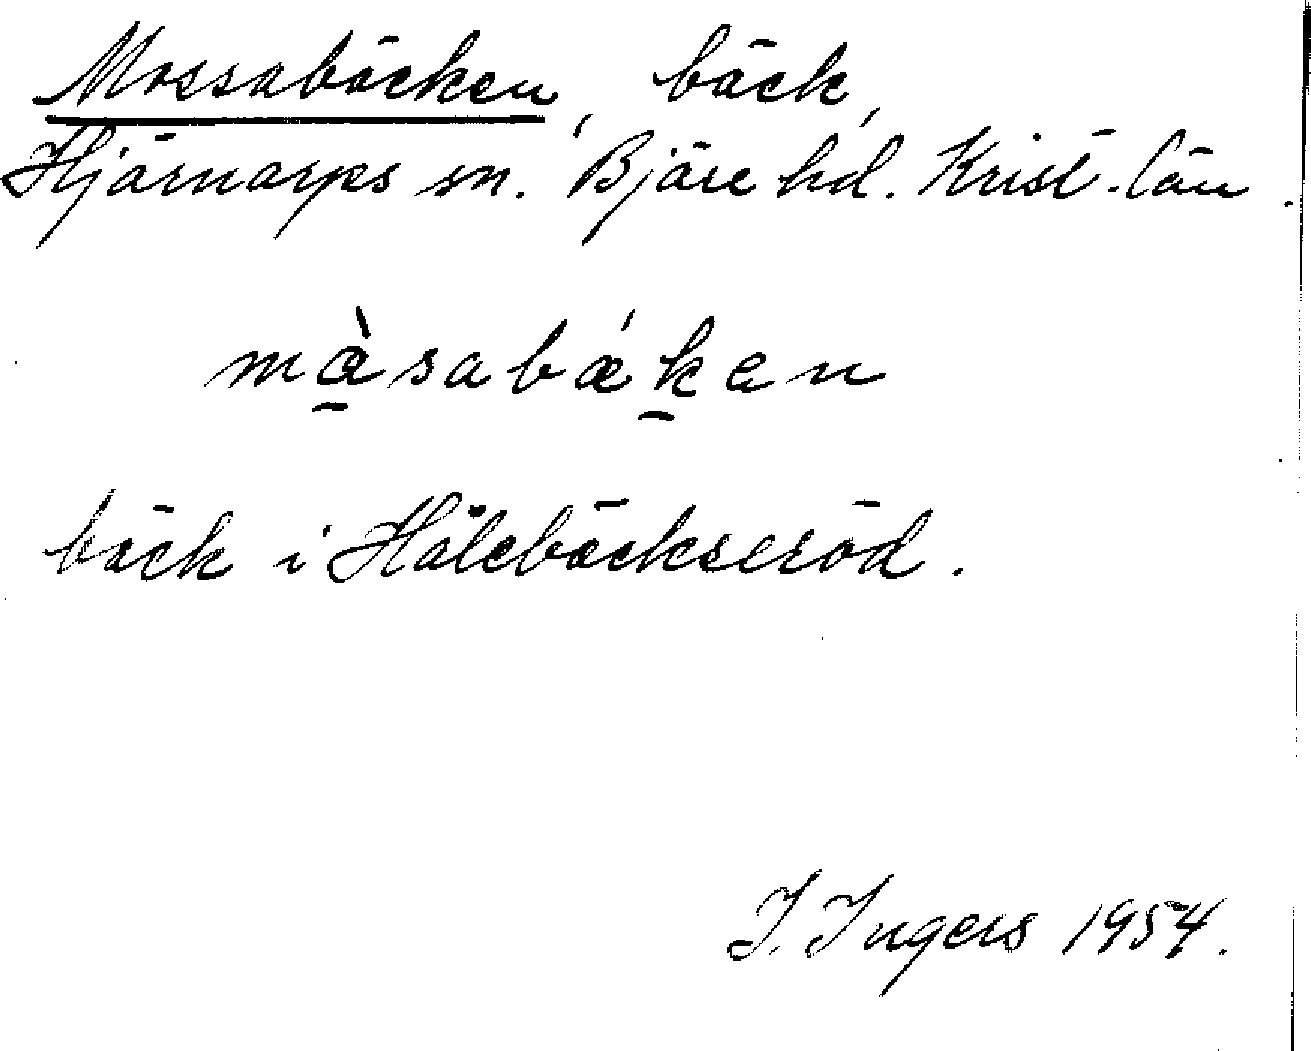 Mossabäcken, bäck,
Hjärnarps sn. Bjäre hd. Krist. län.
mɑ̱̀sabǽḵen
bäck i Hålebäckseröd.
I. Ingers 1954.